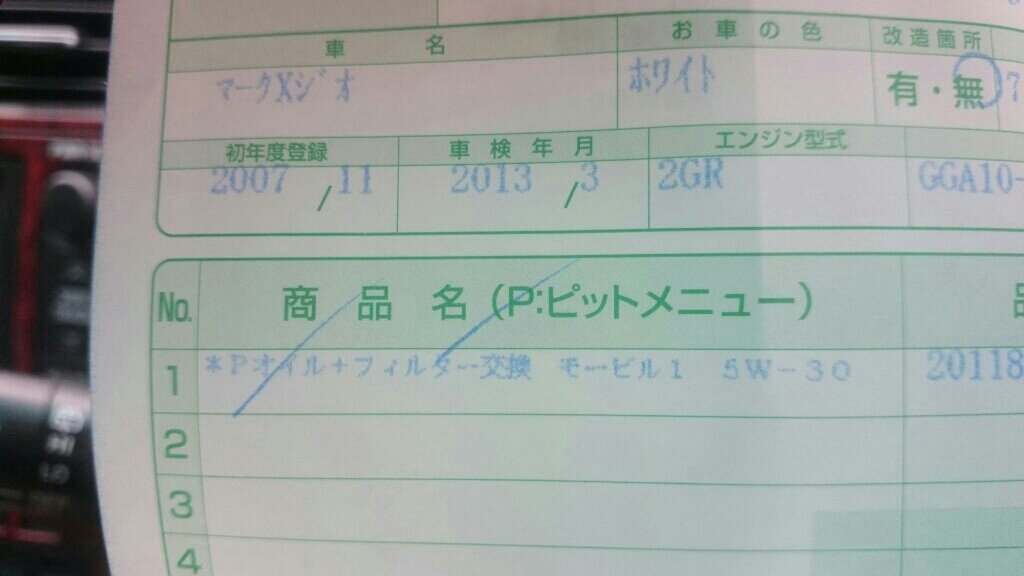 車名 お車の色 改造箇所
マークXジオ ホワイト 有・無 7
初年度登録 車検年月 エンジン型式
2007/11 2013/3 2GR GGA10-
No. 商品名(P:ピットメニュー) 品
1 *Pオイル+フィルター交換 モービル1 5W-30 20118
2
3
4